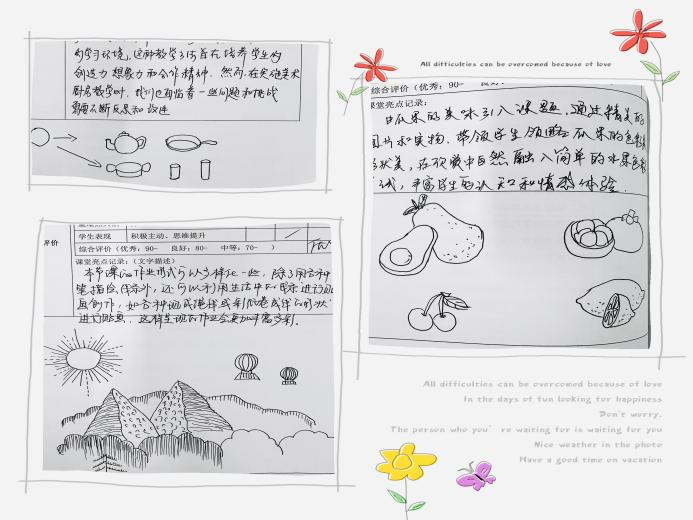 的学习环境，这种教学方法旨在培养学生的
创造力想象力和合作精神。然而，在实施美术
厨房教学时，我们也面临着一些问题和挑战
需要不断反思和改进
学生表现 积极主动、思维提升
评价
综合评价（优秀：90- 良好：80- 中等：70- ）
课堂亮点记录：（文字描述）
本节课的作业形式可以多样化一些，除了用各种
笔描绘
进行贴画，这样呈现的作业会更加丰富多彩。
All difficulties can be overcome because of love
综合评价（优秀：90-
课堂亮点记录：
由瓜果的美味引入课题，通过精美的
图片和实物，带领学生领略瓜果的色彩
形状美，在欣赏中自然融入简单的水果色彩
丰富学生的认知和情感体验．
All difficulties can be overcome because of love
In the days of fun looking for happiness
Don't worry.
The person who you're waiting for is waiting for you
Nice weather in the photo
Have a good time on vacation